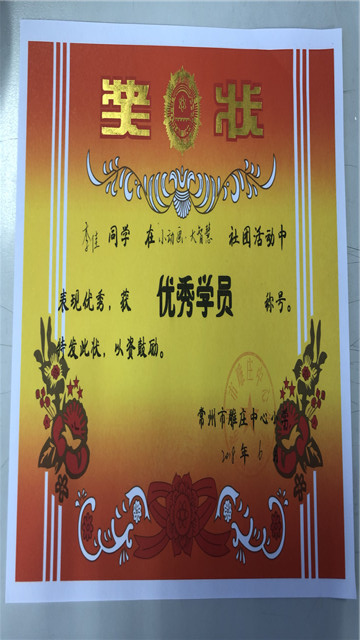 奖状
李佳同学 在小动画·大智慧 社团活动中
表现优秀，获 优秀学员 称号。
特发此状，以资鼓励。
常州市雕庄中心小学
2018年6月